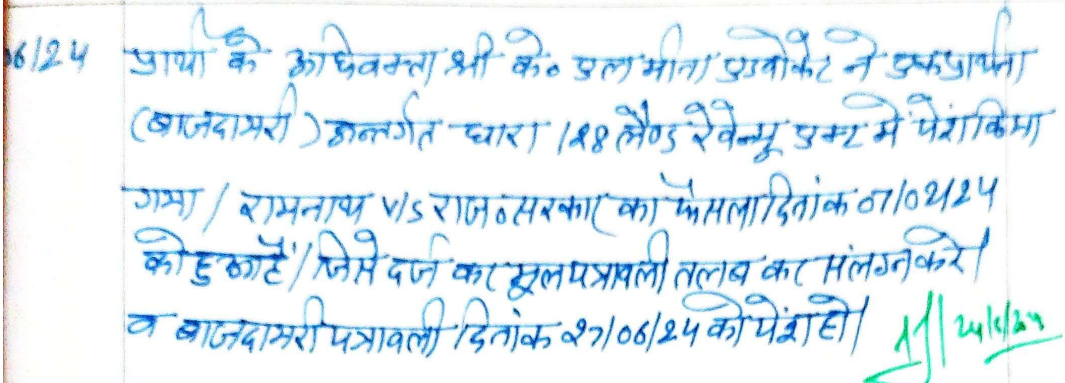 06/24 प्रार्थी के अधिवक्ता श्री के० एल मीना एडवोकेट ने एक प्रार्थना
(बाजदायरी) अन्तर्गत धारा 128 लैण्ड रेवेन्यू एक्ट में पेश किया
गया / रामनाथ v/s राज० सरकार का फैसला दिनांक 07/02/24
को हुआ हैं / जिसे दर्ज कर मूल पत्रावली तलब कर संलग्न करे /
व बाजदायरी पत्रावली दिनांक 27/06/24 को पेश हो /